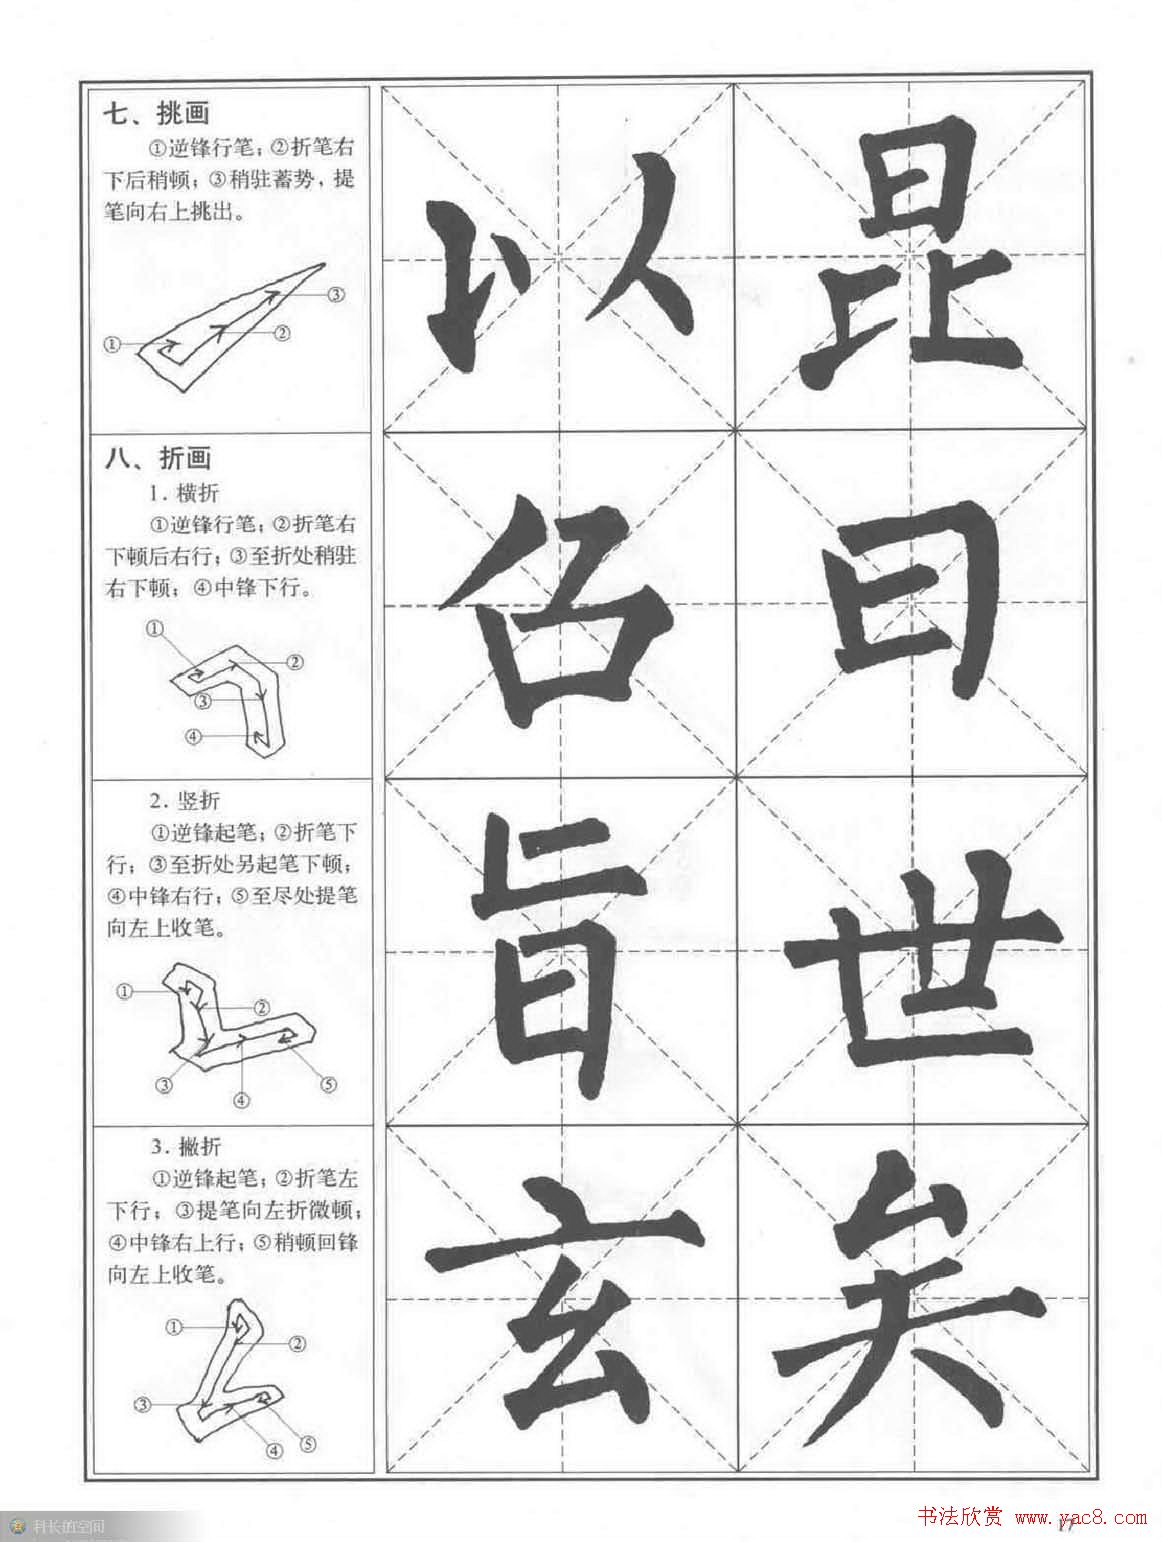 七、挑画
①逆锋行笔；②折笔右
下后稍顿；③稍驻蓄势，提
笔向右上挑出。
①
②
③
以 昆
八、折画
1. 横折
①逆锋行笔；②折笔右
下顿后右行；③至折处稍驻
右下顿；④中锋下行。
①
②
③
④
佋 曰
2. 竖折
①逆锋起笔；②折笔下
行；③至折处另起笔下顿；
④中锋右行；⑤至尽处提笔
向左上收笔。
①
②
③
④
⑤
旨 世
3. 撇折
①逆锋起笔；②折笔左
下行；③提笔向左折微顿；
④中锋右上行；⑤稍顿回锋
向左上收笔。
①
②
③
④
⑤
玄 矣
17
书法欣赏 www.yac8.com
科长的空间